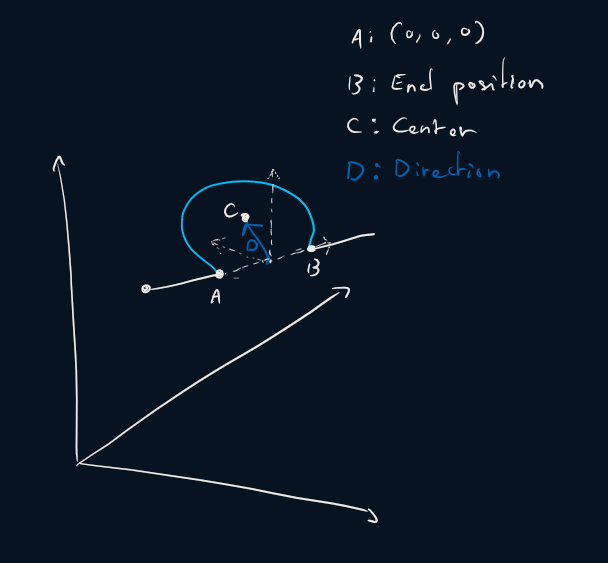 A: (0, 0, 0)
B: End position
C: Center
D: Direction
C
D
B
A